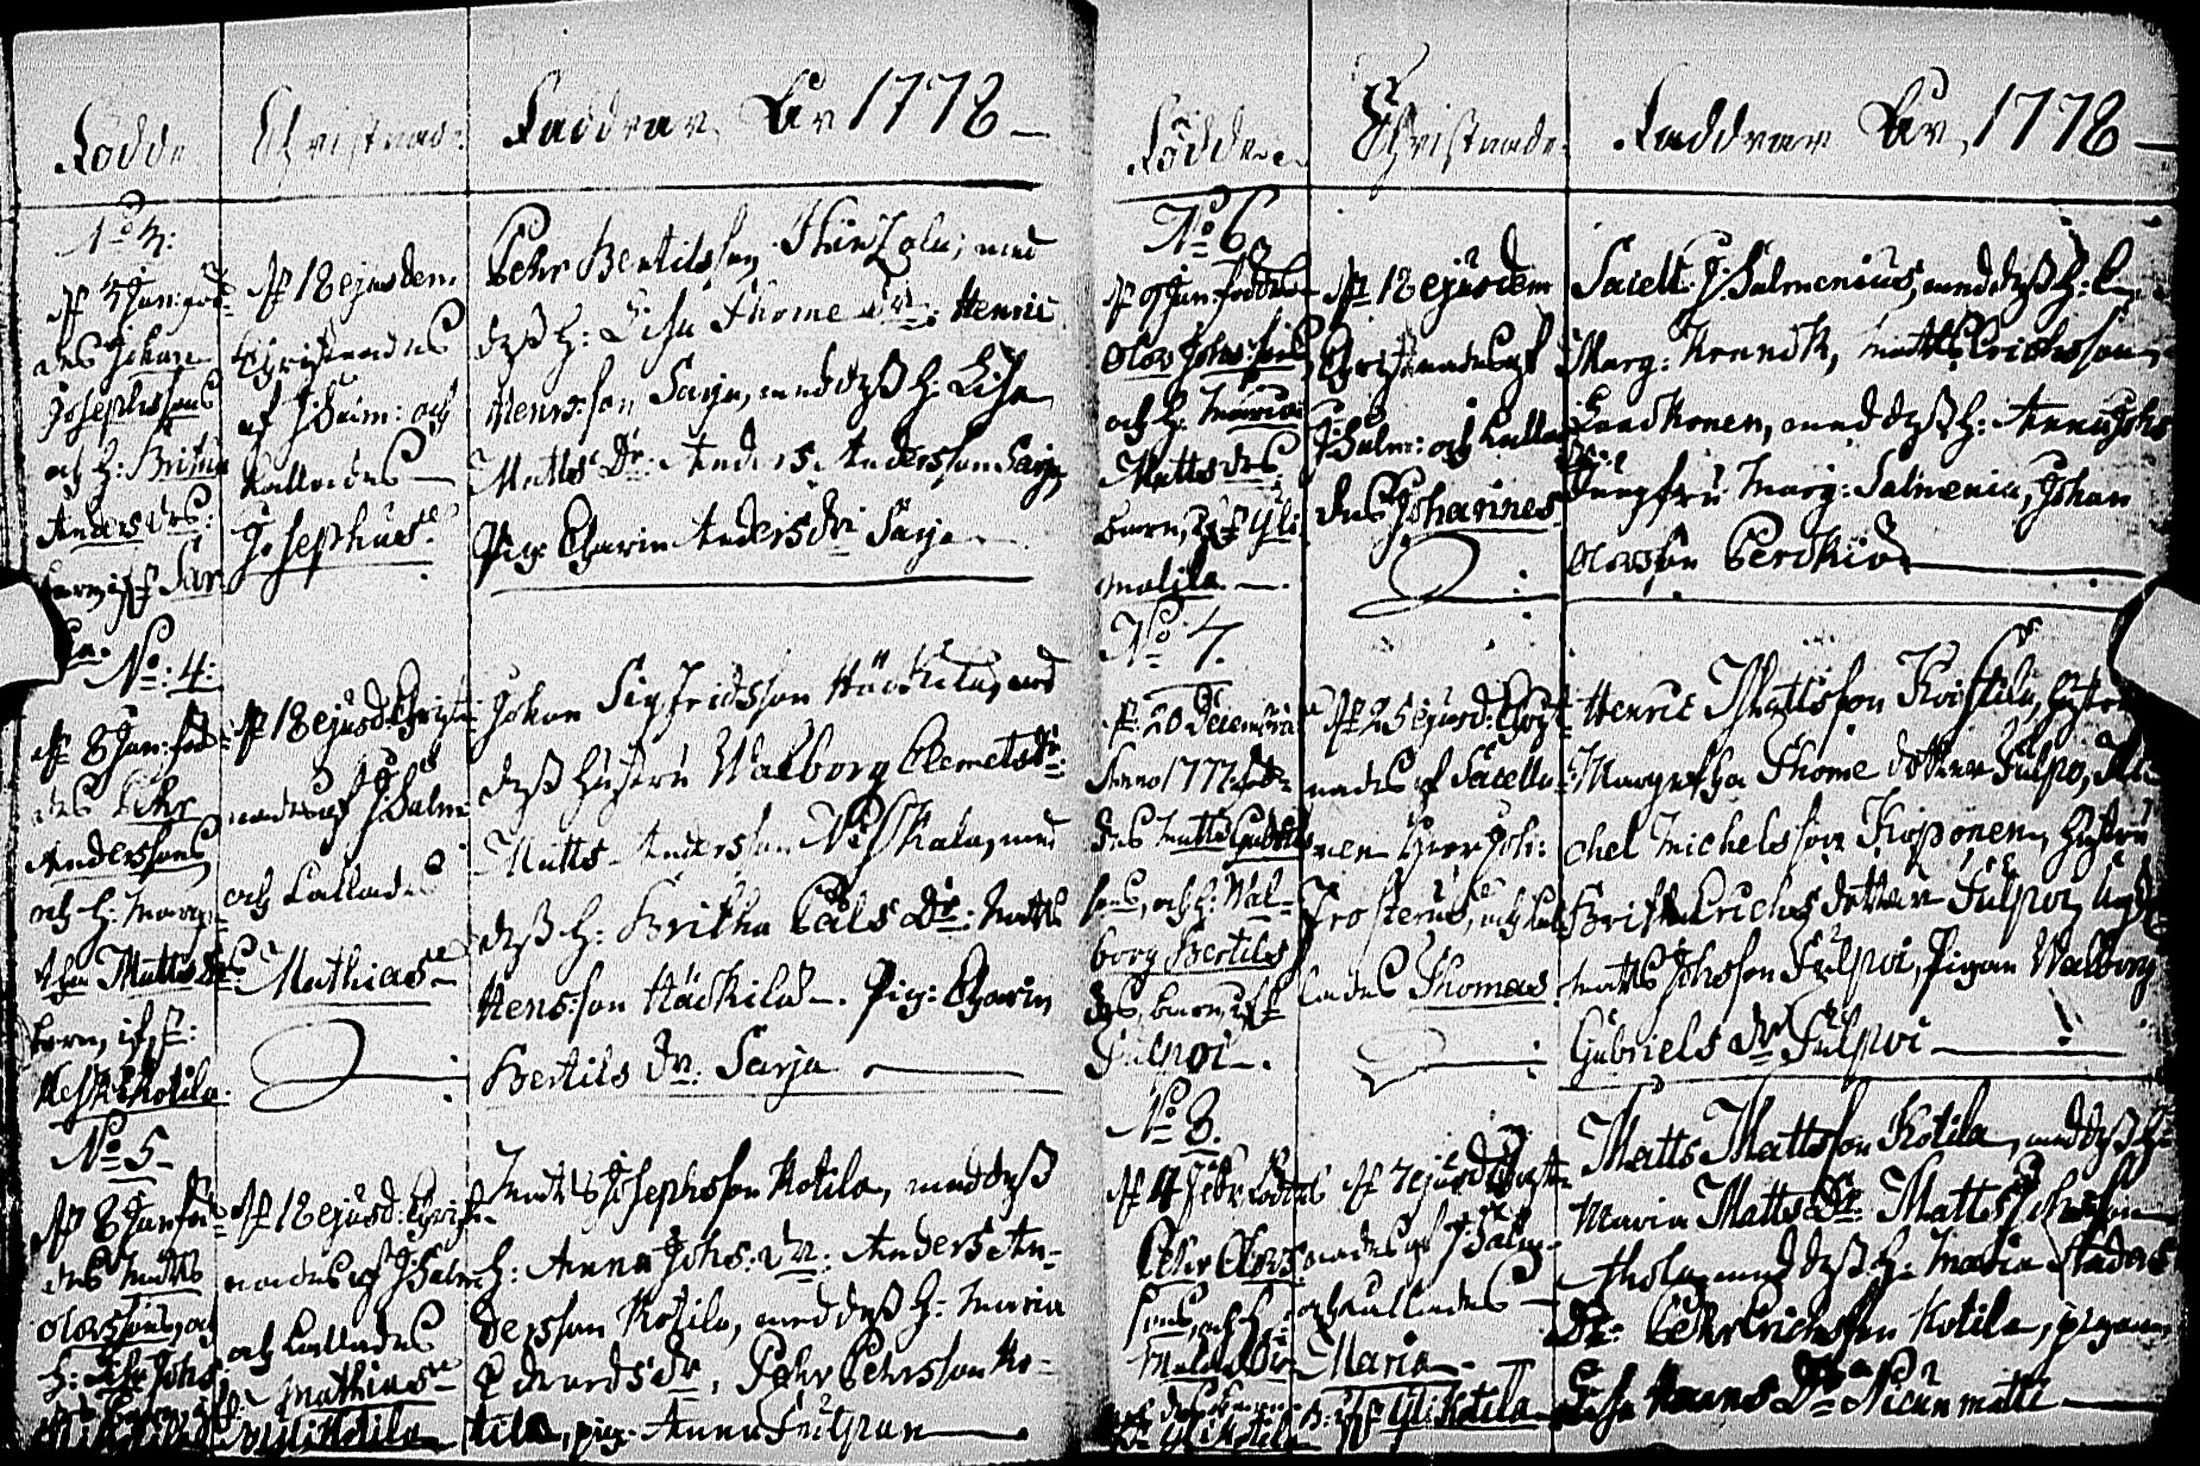 Födde
Christnade
Faddrar År 1778
No 3:
d 5 Jan: föd-
des Johan
Josephssons
och h: Britha
Anders drs:
barn, if Sar
ja.
d 18 ejusdem
Christnades
af J Salm: och
kallades
Josephus
Pehr Bertilsson, med
dess h: Lisa Thome dr: Henric
Henrsson Sarja, med dess h: Lisa
Matts dr: Anders Andersson Sarja,
Pig: Charin Anders dr Sarja
No: 4:
d 8 Jan: föd-
des Pehr
Anderssons
och h: Marg-
tha Matts drs
barn, if
Keskikotila.
d 18 ejusd: Christ-
nades af J: Salm:
och kallades
Mathias
Johan Sigfridsson Häckilä, med
dess hustru Walborg Clemets dr:
Matts Andersson Niskala, med
dess h: Britha Påls dr: Matts
Hensson Häckilä. Pig: Charin
Bertils dr: Sarja
No 5
d 8 Jan föd-
des Matts
Olofssons, och
h: Johs
d 18 ejusd: Christ-
nades af J: Salm
och kallades
Mathias
Ylikotila
Matts Josephsson Kotila, med dess
h: Anna Johs: dr: Anders An-
dersson Kotila, med dess h: Maria
Edvards dr, Pehr Pehrsson Ko-
tila, pig: Anna
Födde
Christnade
Faddrar År 1778
No 6
d 9 Jan: föddes
Olov Johs: sons
och h: Maria
Matts drs
barn, if Yli
mattila
d 18 ejusdem
Christnades af
J: Salm: och kalla
des Johannes
Sacell: J: Salmenius, med dess h:
Marg: Kranck, Matts Erichsson
med dess h: Anna Johs
Jungfru Marg: Salmenia, Johan
Olovsson Perckiö
No 7.
d: 20 December
Anno 1777 föd-
des Matts Gabriels
sons, och h: Wal-
borg Bertils
drs, barn, if
Fulpoi.
d 25 ejusd: Christ-
nades af Sacella-
nen Herr Joh:
Frosterus, och kal-
lades Thomas
Henric Mattsson Kristila, hustru
Margetha Thome dotter Fulpo, Mi-
chel Michelsson Koponen, hustru
Brita Erichs dotter Fulpoi, Ungd:
Matts Johsson Fulpoi, Pigan Walborg
Gabriels dr Fulpoi
No 8.
d 4 Febr: föddes
Pehr Olovs
sons, och h:
barn
Ylikotila
d 7 ejusd Christ-
nades af J: Salm-
och kallades
Maria
Ylikotila
Matts Mattsson Kotila, med dess h:
Maria Matts dr: Matts Johansson
med dess h: Maria
dr: Pehr Erichsson Kotila, pigan
Lisa Hans dr Nicunmatti